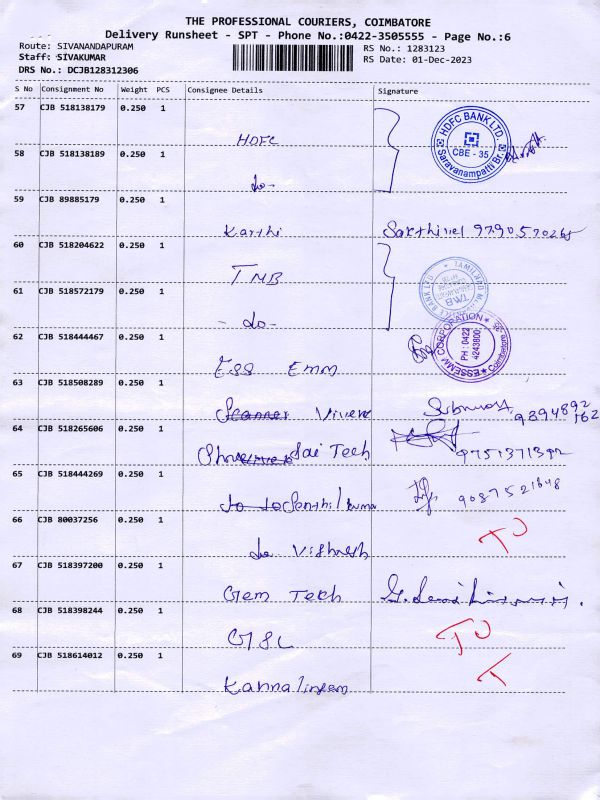 THE PROFESSIONAL COURIERS, COIMBATORE
Delivery Runsheet - SPT - Phone No.:0422-3505555 - Page No.:6
Route: SIVANANDAPURAM RS No.: 1283123
Staff: SIVAKUMAR RS Date: 01-Dec-2023
DRS No.: DCJB128312306
S No Consignment No Weight PCS Consignee Details Signature
57 CJB 518138179 0.250 1 HDFC
HDFC BANK LTD.
CBE - 35
Saravanampatti Br.
58 CJB 518138189 0.250 1 do-
59 CJB 89885179 0.250 1 Karthi Sakthivel 9790570265
60 CJB 518204622 0.250 1 TMB
TMB
61 CJB 518572179 0.250 1 -do-
62 CJB 518444467 0.250 1 ESS Emm
ESSEMM CORPORATION
PH : 0422
4243800
Coimbatore - 35
63 CJB 518508289 0.250 1 Scanner 9894892162
64 CJB 518265606 0.250 1 Sai Tech 9751371392
65 CJB 518444269 0.250 1 Senthil kumar 9087521648
66 CJB 80037256 0.250 1
67 CJB 518397200 0.250 1 Gem Tech
68 CJB 518398244 0.250 1
69 CJB 518614012 0.250 1